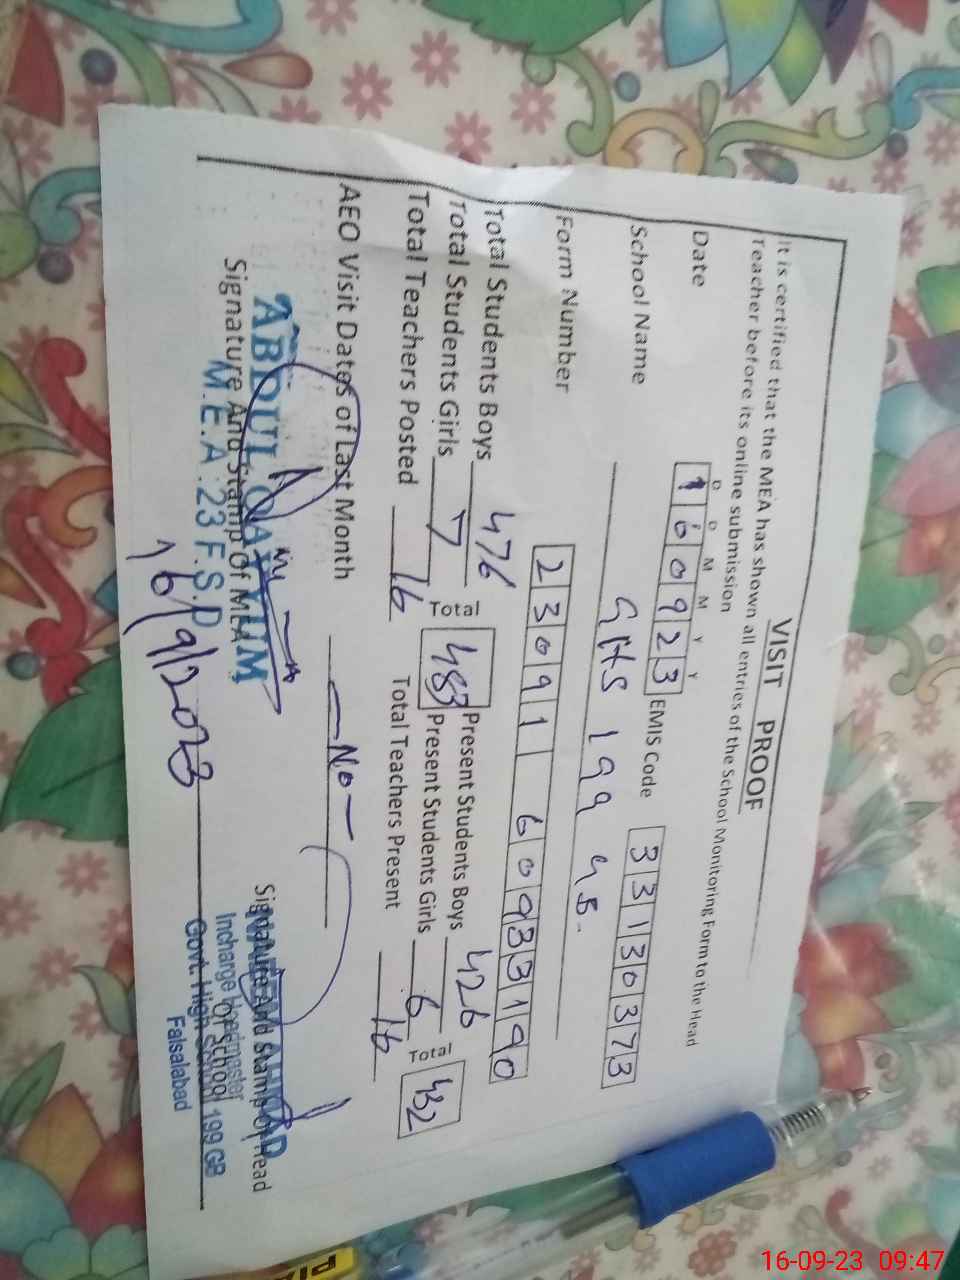 VISIT PROOF
It is certified that the MEA has shown all entries of the School Monitoring Form to the Head
Teacher before its online submission
D D M M Y Y
Date 160923 EMIS Code 33130373
School Name GHS 199 GB.
Form Number 23091 60933190
Total Students Boys 476 Present Students Boys 426
Total Students Girls 7 Total 483 Present Students Girls 6 Total 432
Total Teachers Posted 16 Total Teachers Present 16
AEO Visit Dates of Last Month —No—
ABDUL QAYYUM
Signature And Stamp of MEA
M.E.A :23 F.S.D
16/9/2023
Signature And Stamp of Head
of School
Incharge Headmaster
Govt. High School 199 GB
Faisalabad
16-09-23 09:47